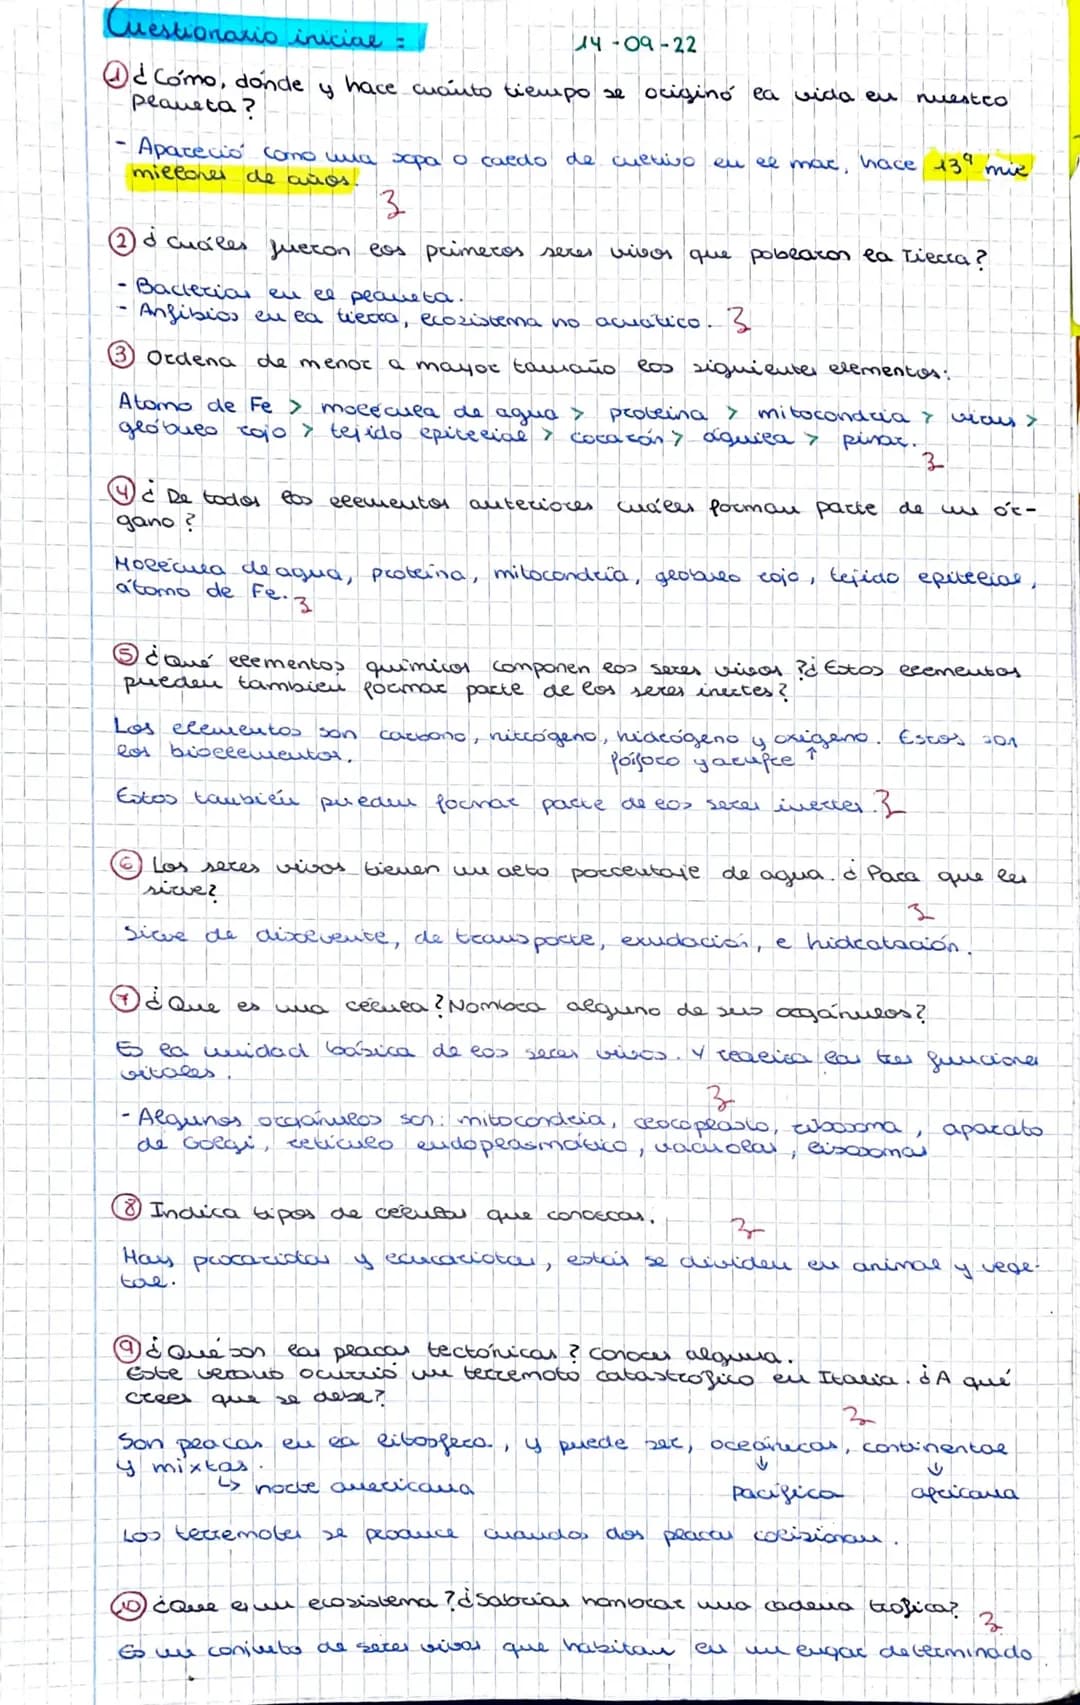 Cuestionario inicial :
14-09-22
① ¿Cómo, dónde y hace cuánto tiempo se originó la vida en nuestro
planeta?
- Apareció como una sopa o caldo de cultivo en el mar, hace 13ª mil
millones de años.
② ¿Cuáles fueron los primeros seres vivos que poblaron la Tierra?
- Bacterias en el planeta.
- Anfibios en la tierra, ecosistema no acuático.
③ Ordena de menor a mayor tamaño los siguientes elementos:
Átomo de Fe > molécula de agua > proteína > mitocondria > virus >
glóbulo rojo > tejido epitelial > corazón > águila > pinar.
④ ¿De todos los elementos anteriores cuáles forman parte de un ór-
gano?
Molécula de agua, proteína, mitocondria, glóbulo rojo, tejido epitelial,
átomo de Fe.
⑤ ¿Qué elementos químicos componen los seres vivos? ¿Estos elementos
pueden también formar parte de los seres inertes?
Los elementos son carbono, nitrógeno, hidrógeno y oxígeno. Estos son
los bioelementos. fósforo y azufre ↑
Estos también pueden formar parte de los seres inertes.
⑥ Los seres vivos tienen un alto porcentaje de agua. ¿Para que les
sirve?
Sirve de disolvente, de transporte, exudación, e hidratación.
⑦ ¿Que es una célula? Nombra alguno de sus orgánulos?
Es la unidad básica de los seres vivos. Y realiza las tres funciones
vitales.
- Algunos orgánulos son: mitocondria, cloroplasto, ribosoma, aparato
de Golgi, retículo endoplasmático, vacuolas, lisosomas
⑧ Indica tipos de células que conozcas.
Hay procariotas y eucariotas, estás se dividen en animal y vege-
tal.
⑨ ¿Qué son las placas tectónicas? conoces alguna.
Este verano ocurrió un terremoto catastrófico en Italia. ¿A qué
crees que se debe?
Son placas en la litosfera, y puede ser, oceánicas, continental
y mixtas. ↓ ↓
↳ norte americana pacífica africana
Los terremotes se produce cuandos dos placas colisionan.
⑩ ¿Que es un ecosistema? ¿Sabrías nombrar una cadena trófica?
Es un conjunto de seres vivos que habitan en un lugar determinado.